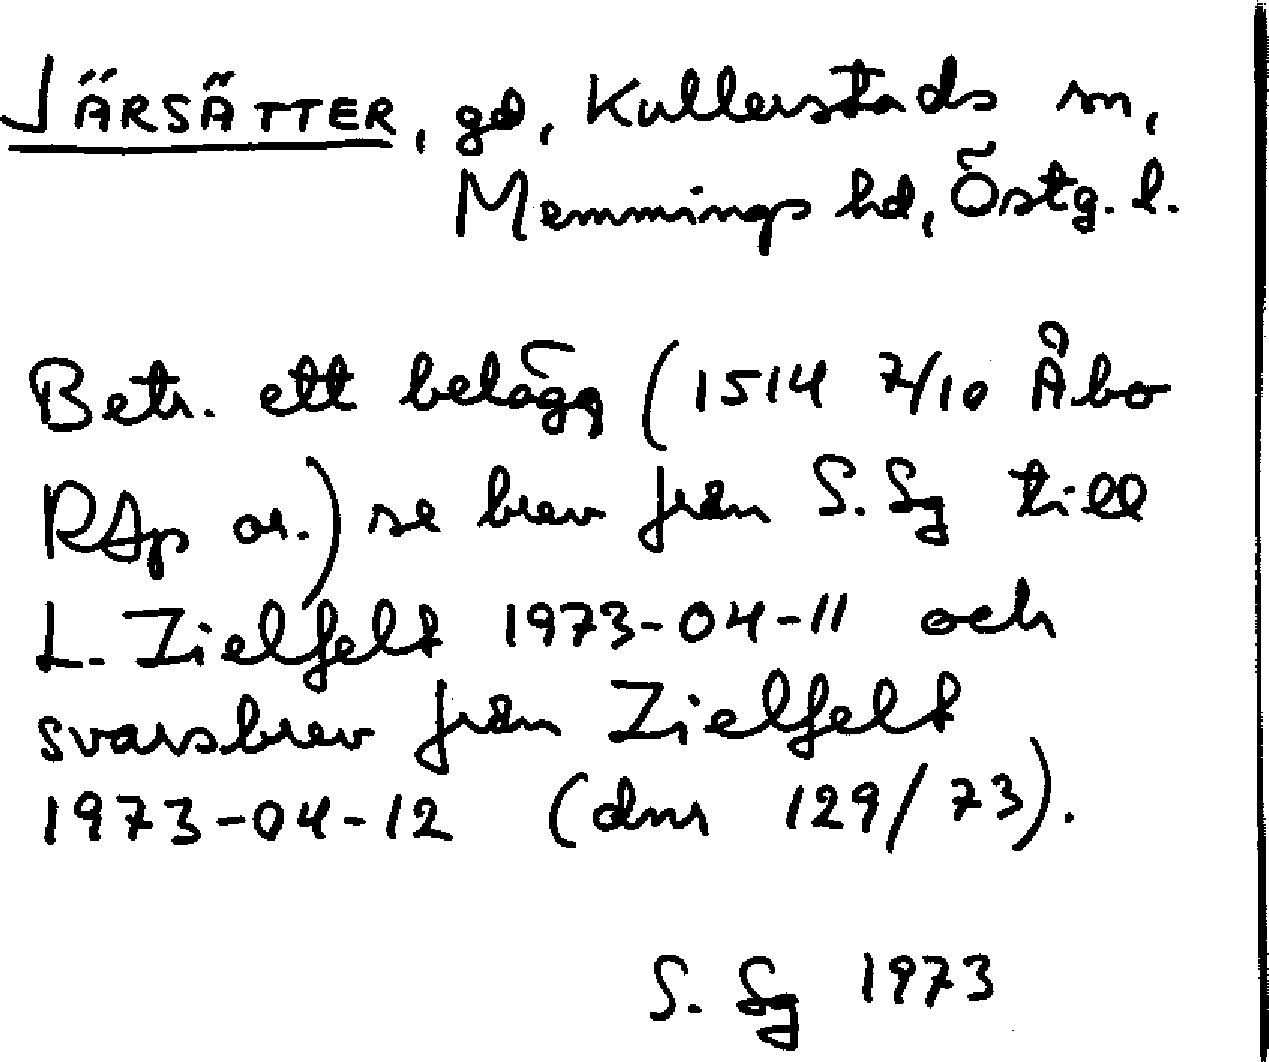 JÄRSÄTTER, gd, Kullerstads sn,
Memmings hd, Östg. l.
Betr. ett belägg (1514 7/10 Åbo
RAp or.) se brev från S. Sg till
L. Zielfelt 1973-04-11 och
svarsbrev från Zielfelt
1973-04-12 (dnr 129/73).
S. Sg 1973